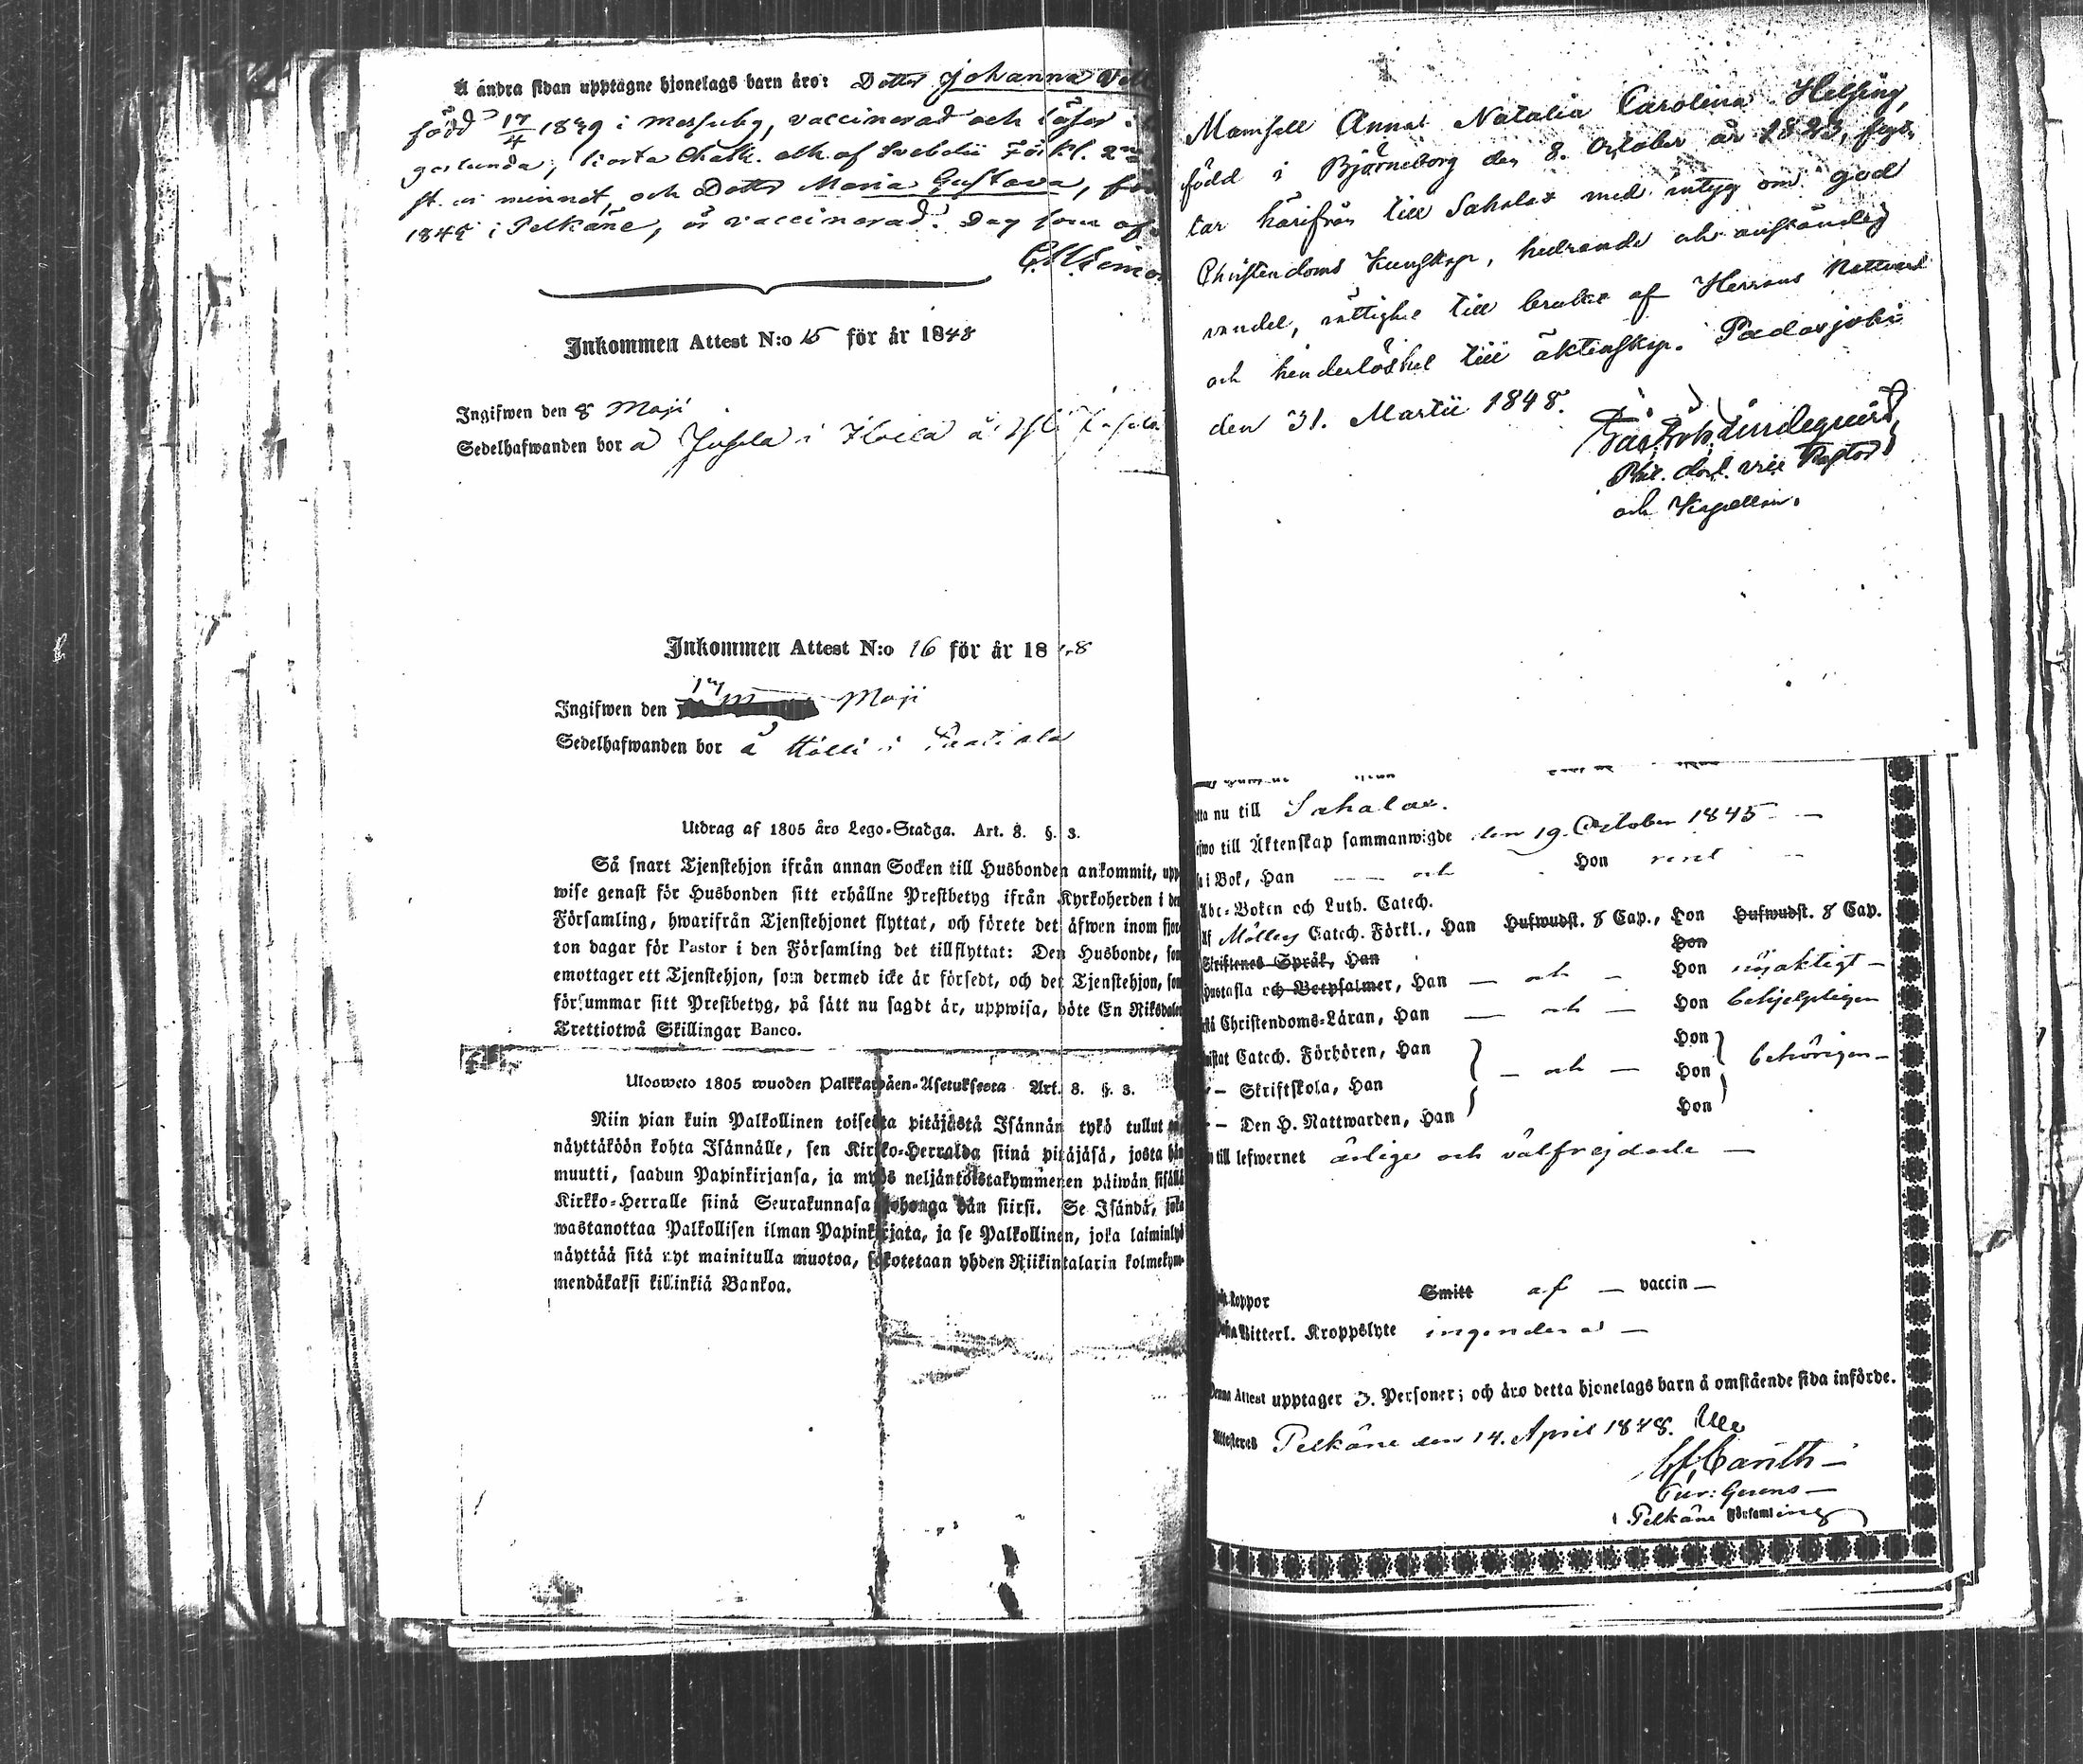 Å andra sidan upptagne hjonelags barn äro: Dotter Johanna
född 17/4 1839 i Messuby, vaccinerad och läser
st. ur minnet, och Dotter Maria Gustava,
1845 i Pelkäne, är vaccinerad. Dag som
Inkommen Attest N:o 15 för år 1848
Ingifwen den 8 Maji
Sedelhafwanden bor å i
Inkommen Attest N:o 16 för år 1848
Ingifwen den Maji
Sedelhafwanden bor å Hölli i
Utdrag af 1805 års Lego-Stadga. Art. 8. §. 3.
Så snart Tjenstehjon ifrån annan Socken till Husbonden ankommit, upp
wise genast för Husbonden sitt erhållne Prestbetyg ifrån Kyrkoherden i den
Församling, hwarifrån Tjenstehjonet flyttat, och förete det äfwen inom fjor
ton dagar för Pastor i den Församling det tillflyttat: Den Husbonde, som
emottager ett Tjenstehjon, som dermed icke är försedt, och det Tjenstehjon, som
försummar sitt Prestbetyg, på sätt nu sagdt är, uppwisa, böte En Riksdaler
Trettiotwå Skillingar Banco.
Ulosweto 1805 wuoden Palkkawäen-Asetuksesta Art. 8. §. 3.
Niin pian kuin Palkollinen toisesta pitäjästä Isännän tykö tullut on
näyttäköön kohta Isännälle, sen Kirkko-Herralda siinä pitäjäsä, josta hän
muutti, saadun Papinkirjansa, ja myös neljäntoistakymmenen päiwän sisällä
Kirkko-Herralle siinä Seurakunnasa johonga hän siirsi. Se Isändä, joka
wastanottaa Palkollisen ilman Papinkirjata, ja se Palkollinen, joka laiminlyö
näyttää sitä nyt mainitulla muotoa, sakotetaan yhden Riikintalarin kolmekym-
mendäkaksi killinkiä Bankoa.
Mamsell Anna Natalia Carolina Helsing,
född i Björneborg den 8. October år 1823, flyt-
tar härifrån till Sahalax med intyg om god
Christendoms kunskap, hedrande och anständig
vandel, rättighet till bruket af Herrans Nattvard
och hinderlöshet till äktenskap. Padasjoki
den 31. Martii 1848.
Lindequist,
Phil. doct. vice Pastor
och Kapellan.
nu till Sahalax.
till Äktenskap sammanwigde den 19. October 1845 —
i Bok, Han — och Hon rent —
Abc-Boken och Luth. Catech.
Af Möllers Catech. Förkl., Han Hufwudst. 8 Cap., Hon Hufwudst. 8 Cap.
Skriftenes Språk, Han Hon
Hustafla och Botpsalmer, Han — och — Hon nöjaktigt —
Christendoms-Läran, Han — och — Hon behjelpligen
Catech. Förhören, Han Hon
— Skriftskola, Han — och — Hon behörigen —
— Den H. Nattwarden, Han Hon
till lefwernet ärlige och välfrejdade —
koppor Smitt af — vaccin —
Witterl. Kroppslyte ingendera —
Denna Attest upptager 3. Personer; och äro detta hjonelags barn å omstående sida införde.
Attesteres Pelkäne den 14. April 1848.
Cur: Gerens —
Pelkäne Församling